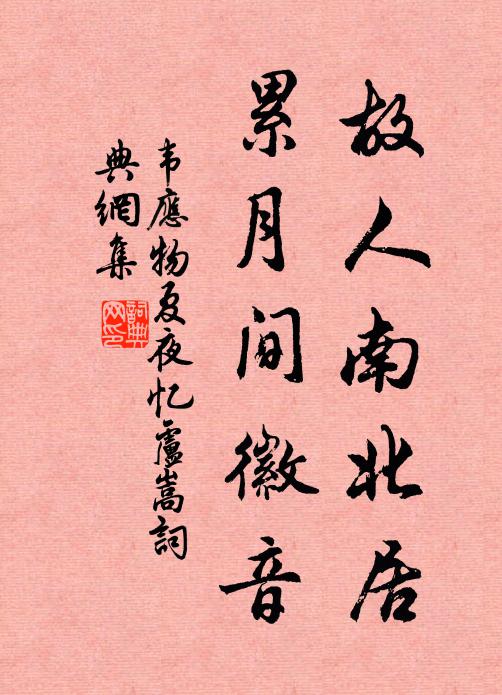 故人南北居
累月间徽音
韦應物夏夜忆盧嵩詞
典網集
詞典网印